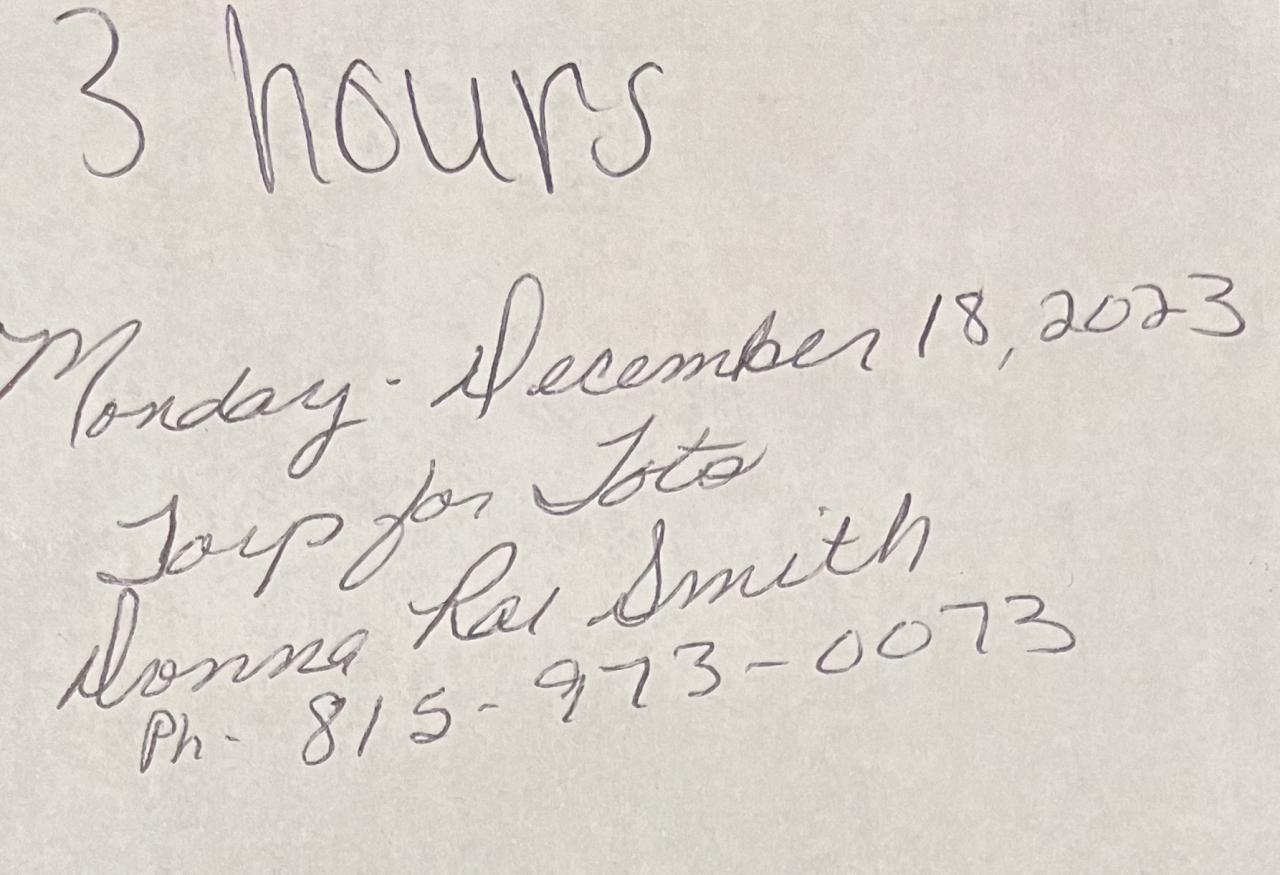 3 hours
Monday - December 18, 2023
Toys for Tots
Donna Rae Smith
Ph- 815-973-0073